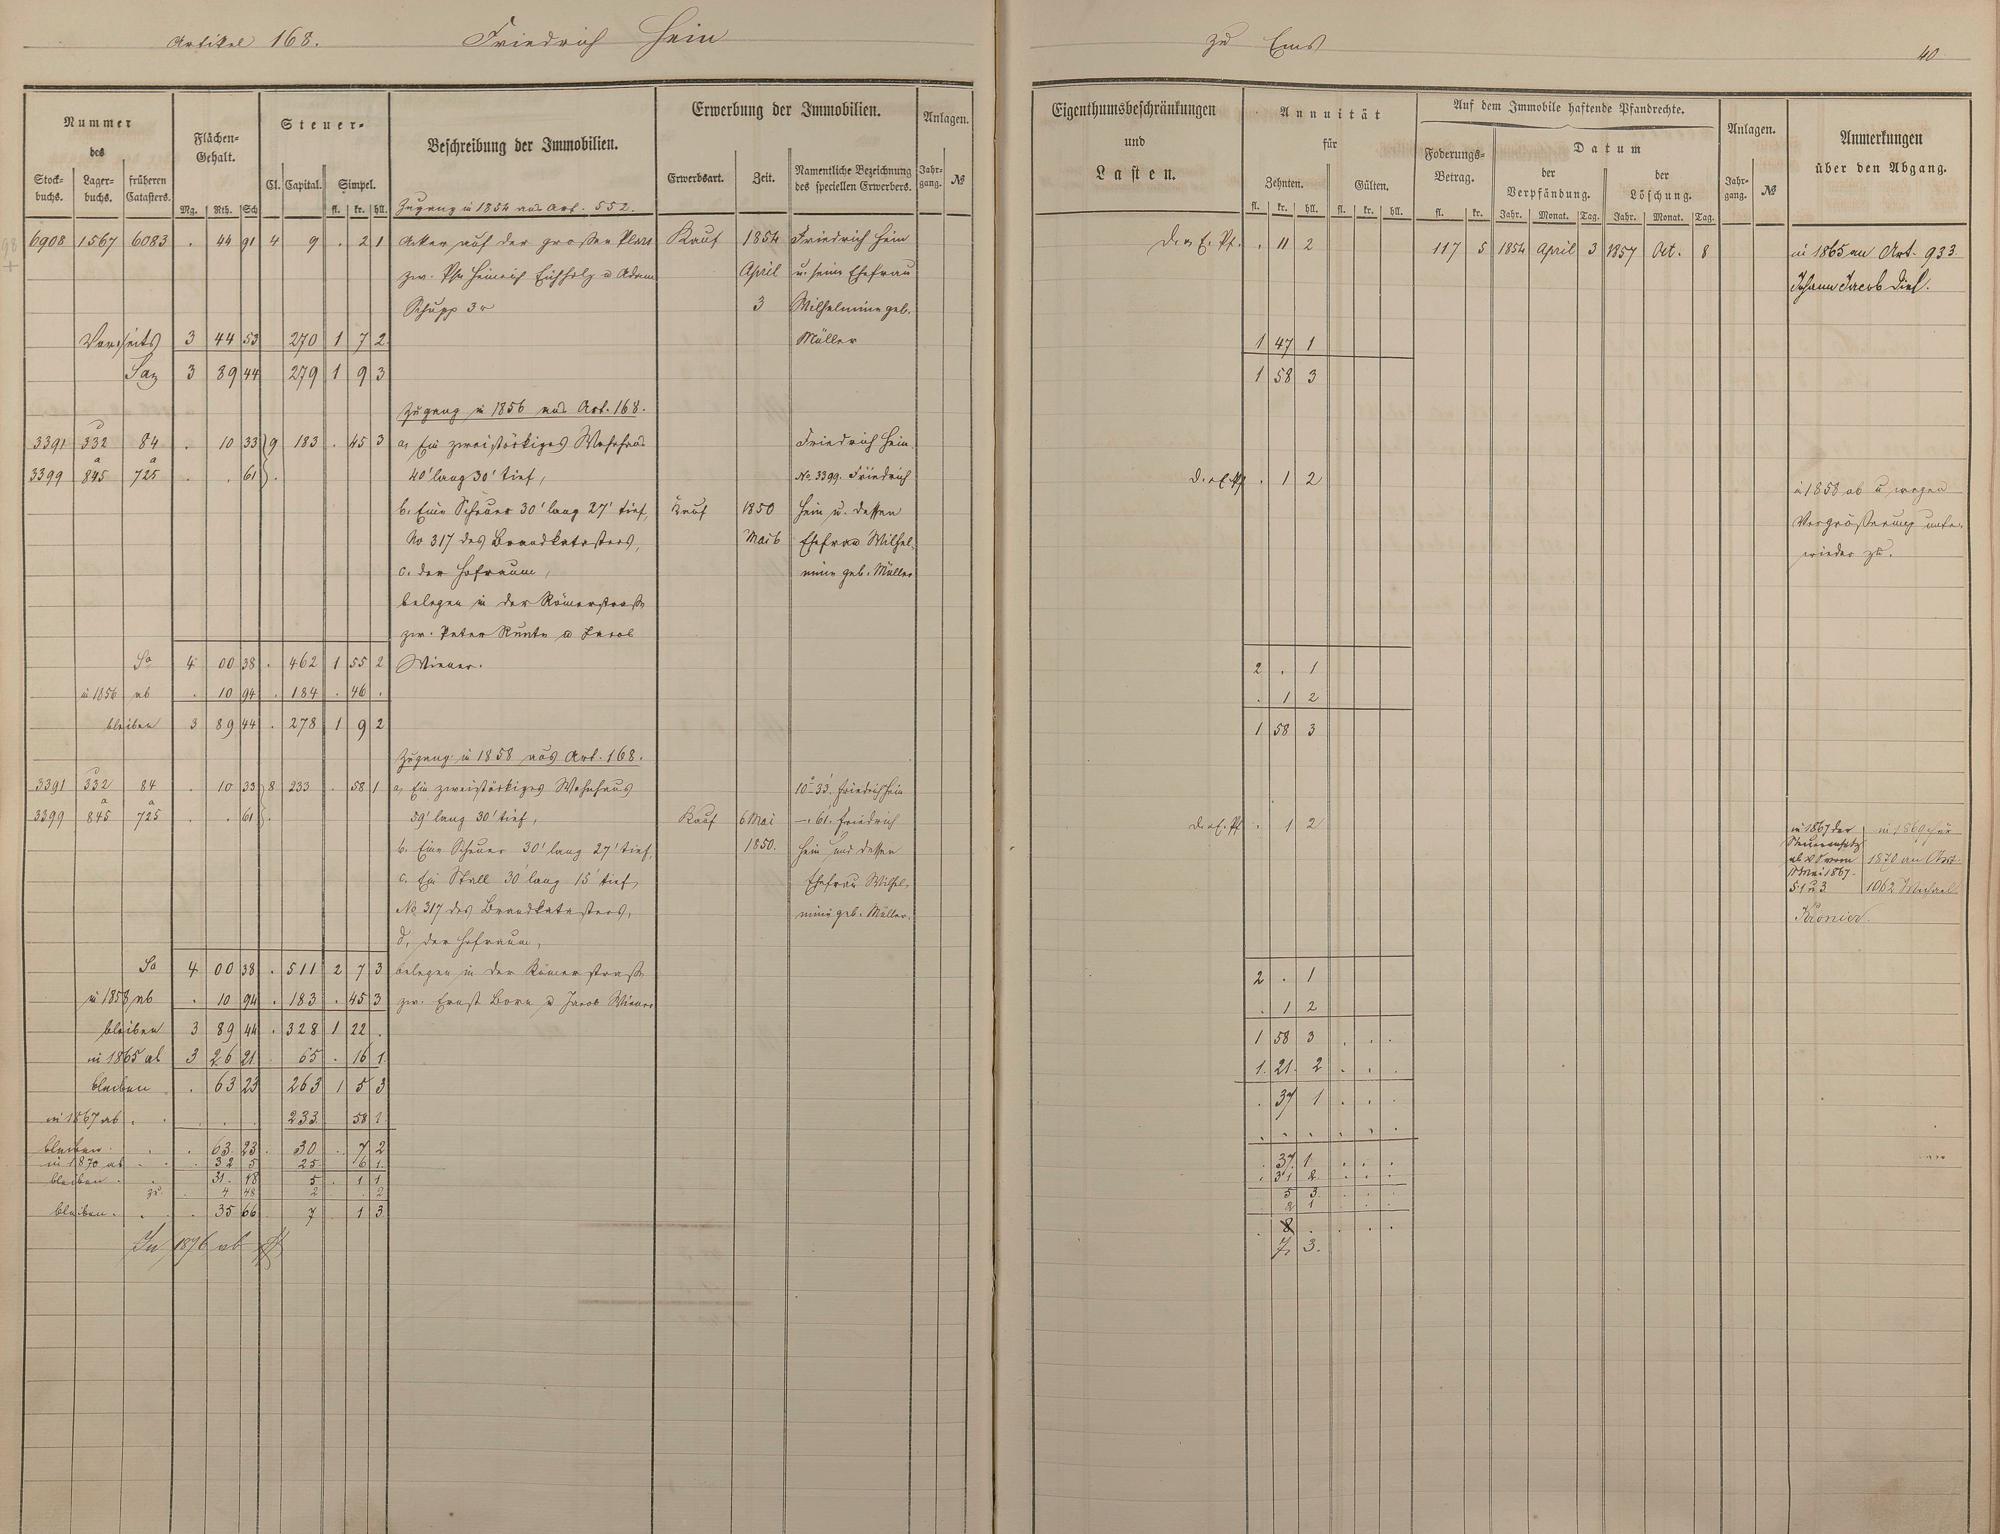 Artikel 168. Friedrich Hein
zu Ems
40
Nummer
des
Stock-
buchs.
Lager-
buchs.
früheren
Catasters.
Flächen-
Gehalt.
Mg. Rth. Sch
Steuer-
Cl. Capital. Simpel.
fl. kr. hll.
Beschreibung der Immobilien.
Erwerbung der Immobilien.
Erwerbsart. Zeit.
Namentliche Bezeichnung
des speciellen Erwerbers.
Anlagen.
Jahr-
gang. №
Eigenthumsbeschränkungen
und
Lasten.
Annuität
für
Zehnten. Gülten.
fl. kr. hll. fl. kr. hll.
Auf dem Immobile haftende Pfandrechte.
Foderungs-
Betrag.
fl. kr.
Datum
der
Verpfändung.
Jahr. Monat. Tag.
der
Löschung.
Jahr. Monat. Tag.
Anlagen.
Jahr-
gang. №
Anmerkungen
über den Abgang.
Zugang in 1854 aus Art. 552.
6908 1567 6083 . 44 91 4 9 . 2 1 Acker auf der großen Platt Kauf 1854 Friedrich Hein
zw. Phr Heinrich Eichholz u Adam April u. seine Ehefrau
Schupp 3r 3 Wilhelmine geb.
Vorseits 3 44 53 270 1 7 2 Müller
Sa 3 89 44 279 1 9 3
Zugang in 1856 aus Art. 168.
3391 332 84 . 10 33 9 183 . 45 3 a, Ein zweistöckiges Wohnhaus Friedrich Hein.
3399 845 725 . . 61 . 40' lang 30' tief, No. 3399. Friedrich
b. Eine Scheuer 30' lang 27' tief, Kauf 1850 Hein u. dessen
No 317 des Brandkatasters, Mai 6 Ehefrau Wilhel-
c. der Hofraum, mine geb. Müller
belegen in der Römerstraße
zw. Peter Kunta u Jacob
Sa 4 00 38 . 462 1 55 2 Wiener.
in 1856 ab . 10 94 . 184 . 46 .
bleiben 3 89 44 . 278 1 9 2
Zugang in 1858 aus Art. 168.
3391 332 84 . 10 33 8 233 . 58 1 a, Ein zweistöckiges Wohnhaus 10° 33' Friedrich Hein
3399 845 725 . . 61 . 59' lang 30' tief, Kauf 6 Mai —. 61. Friedrich
b. Eine Scheuer 30' lang 27' tief, 1850. Hein und dessen
c. Ein Stall 30' lang 15' tief, Ehefrau Wilhel-
No 317 des Brandkatasters, mine geb. Müller.
d, der Hofraum,
Sa 4 00 38 . 511 2 7 3 belegen in der Römerstraße
in 1858 ab . 10 94 . 183 . 45 3 zw. Ernst Born u Jacob Wiener
bleiben 3 89 44 . 328 1 22 .
in 1865 ab 3 26 21 65 . 16 1
bleiben . 63 23 263 1 5 3
in 1867 ab . . . 233 58 1
bleiben . 63 23 30 . 7 2
in 1870 ab . 32 5 25 6 1
bleiben . 31. 18 5 1 1
zu. . 4 48 2 . 2
bleiben . . 35 66 7 1 3
In 1876 ab
D. v. E. Pf. . 11 2 117 5 1854 April 3 1857 Oct. 8 in 1865 an Art. 933
Johann Jacob Diel.
1 47 1
1 58 3
D. v. E. Pf . 1 2
in 1858 ab u wegen
Vergrößerung unten
wieder zu.
2 . 1
. 1 2
1 58 3
D. v. E. Pf . 1 2
in 1867 der
Steueransatz
in 1869 für
1870 an Art.
1062 Michael
2 . 1
. 1 2
1 58 3 . . .
1. 21. 2 . . .
. 37 1 . . .
. . . . . .
. 37. 1 . . .
. 31 2. . . .
5 3. . . .
2 1 . . .
. 8 . . . .
7, 3.